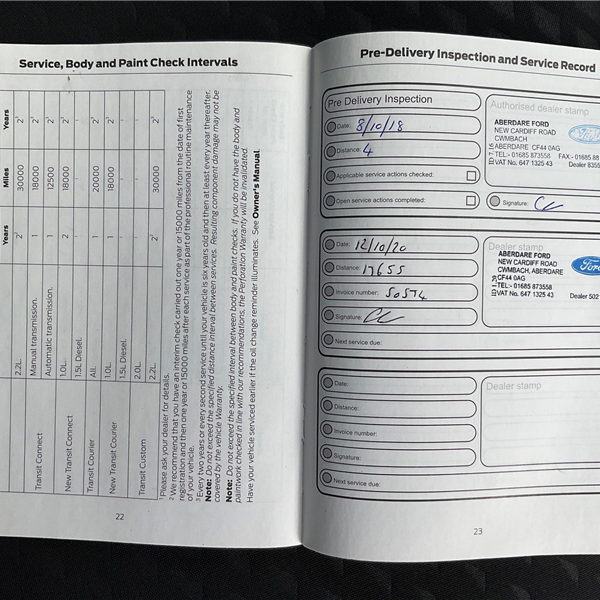 Service, Body and Paint Check Intervals
Years Miles Years
2.2L. 2² 30000 2¹
Transit Connect Manual transmission. 1 18000 2¹
Automatic transmission. 1 12500 2¹
New Transit Connect 1.0L. 2 18000 2¹
1.5L Diesel. - - -
Transit Courier All. 1 20000 2¹
New Transit Courier 1.0L. 1 18000 2¹
1.5L Diesel. - - -
Transit Custom 2.0L. - - -
2.2L. 2² 30000 2³
¹ Please ask your dealer for details.
² We recommend that you have an interim check carried out one year or 15000 miles from the date of first
registration and then one year or 15000 miles after each service as part of the professional routine maintenance
of your vehicle.
³ Every two years or every second service until your vehicle is six years old and then at least every year thereafter.
Note: Do not exceed the specified distance interval between services. Resulting component damage may not be
covered by the vehicle Warranty.
Note: Do not exceed the specified interval between body and paint checks. If you do not have the body and
paintwork checked in line with our recommendations, the Perforation Warranty will be invalidated.
Have your vehicle serviced earlier if the oil change reminder illuminates. See Owner's Manual.
22
Pre-Delivery Inspection and Service Record
Pre Delivery Inspection
Date: 8/10/18
Distance: 4
Applicable service actions checked:
Open service actions completed:
Authorised dealer stamp
ABERDARE FORD
NEW CARDIFF ROAD
CWMBACH
ABERDARE CF44 0AG
TEL:- 01685 873558 FAX:- 01685 88
VAT No. 647 1325 43 Dealer
Signature:
Date: 12/10/20
Distance: 17655
Invoice number: 50574
Signature:
Next service due:
Dealer stamp
ABERDARE FORD
NEW CARDIFF ROAD
CWMBACH, ABERDARE
CF44 0AG
TEL:- 01685 873558
VAT No. 647 1325 43 Dealer 502
Ford
Date:
Distance:
Invoice number:
Signature:
Next service due:
Dealer stamp
23